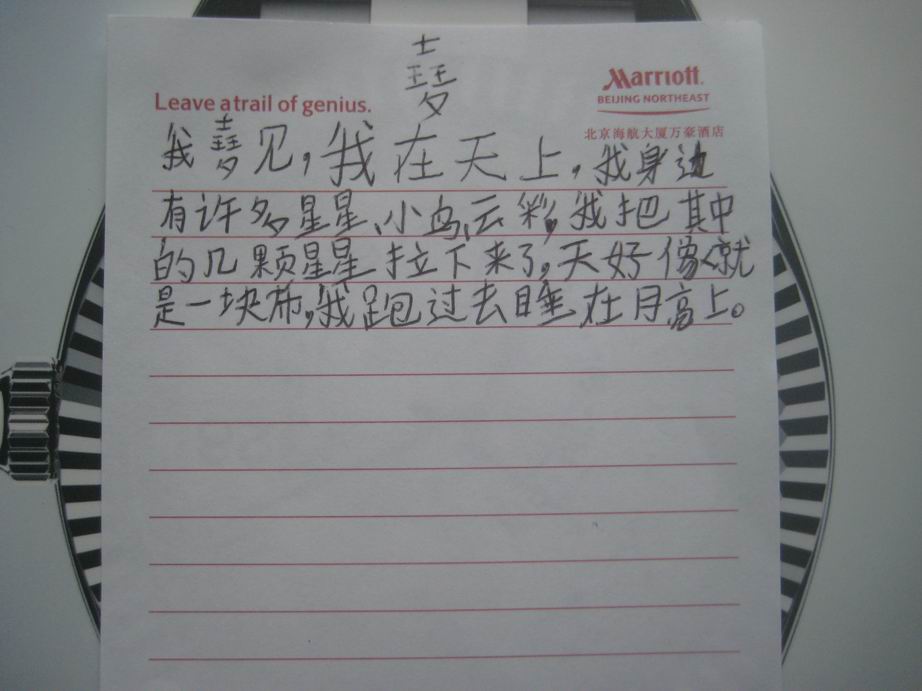 梦
Marriott
BEIJING NORTHEAST
Leave a trail of genius.
北京海航大厦万豪酒店
我梦见,我在天上,我身边
有许多星星、小鸟、云彩,我把其中
的几颗星星拉下来了,天好像就
是一块布,我跑过去睡在月高上。